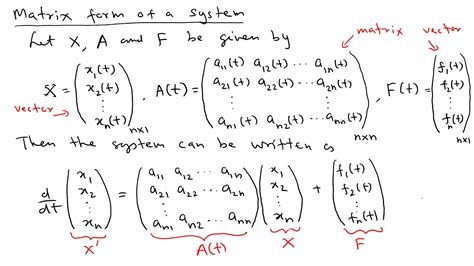 Matrix form of a system
Let X, A and F be given by
matrix vector
X = (x₁(t) x₂(t) ⋮ xₙ(t))ₙₓ₁ , A(t) = (a₁₁(t) a₁₂(t) ⋯ a₁ₙ(t) a₂₁(t) a₂₂(t) ⋯ a₂ₙ(t) ⋮ ⋮ aₙ₁(t) aₙ₂(t) ⋯ aₙₙ(t))ₙₓₙ , F(t) = (f₁(t) f₂(t) ⋮ fₙ(t))ₙₓ₁
vector
Then the system can be written as
d/dt (x₁ x₂ ⋮ xₙ) = (a₁₁ a₁₂ ⋯ a₁ₙ a₂₁ a₂₂ ⋯ a₂ₙ ⋮ aₙ₁ aₙ₂ ⋯ aₙₙ) (x₁ x₂ ⋮ xₙ) + (f₁(t) f₂(t) ⋮ fₙ(t))
X' A(t) X F